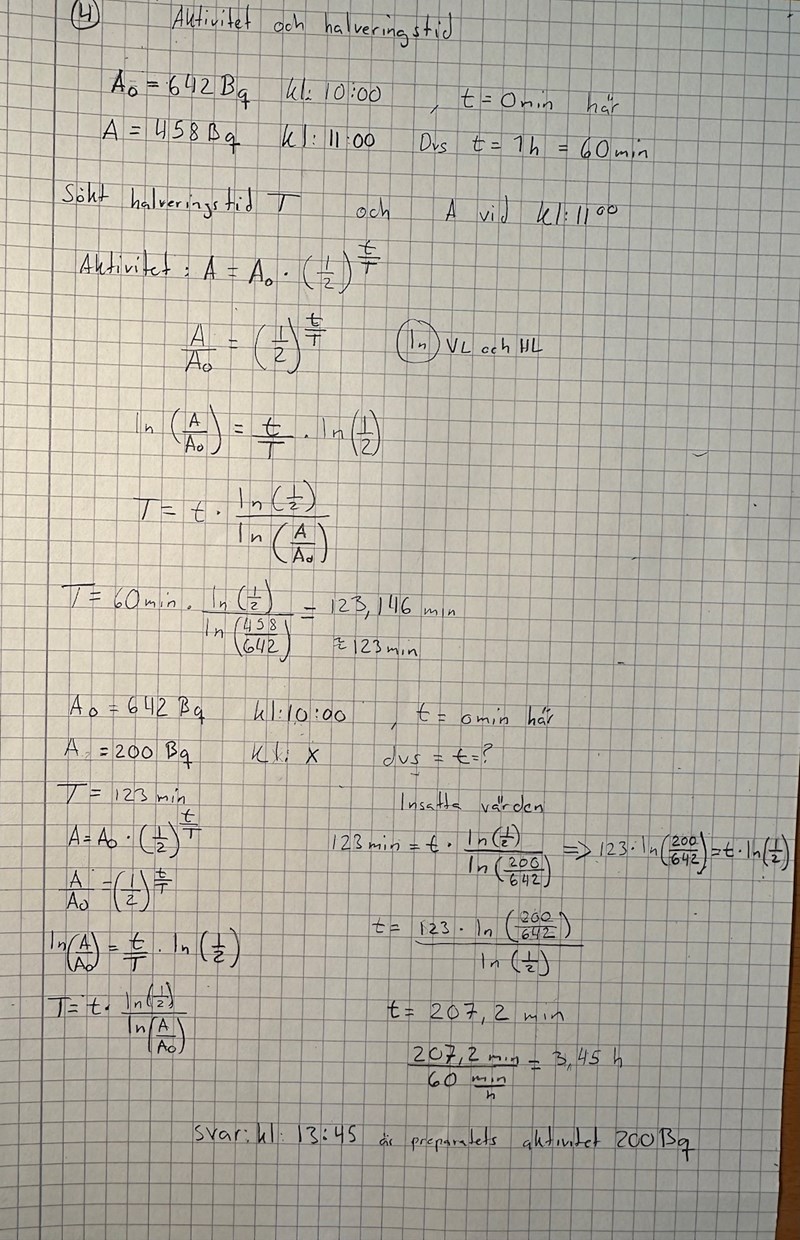 ④ Aktivitet och halveringstid
A₀ = 642 Bq kl: 10:00 , t = 0 min här
A = 458 Bq kl: 11:00 Dvs t = 1h = 60 min
Sökt halveringstid T och A vid kl: 11⁰⁰
Aktivitet: A = A₀ · (1/2)^(t/T)
A/A₀ = (1/2)^(t/T) (ln) VL och HL
ln(A/A₀) = t/T · ln(1/2)
T = t · ln(1/2) / ln(A/A₀)
T = 60 min · ln(1/2) / ln(458/642) = 123,146 min
≈ 123 min
A₀ = 642 Bq kl: 10:00 , t = 0 min här
A = 200 Bq kl: X dvs = t = ?
T = 123 min
A = A₀ · (1/2)^(t/T)
A/A₀ = (1/2)^(t/T)
ln(A/A₀) = t/T · ln(1/2)
T = t · ln(1/2) / ln(A/A₀)
Insatta värden
123 min = t · ln(1/2) / ln(200/642) => 123 · ln(200/642) = t · ln(1/2)
t = 123 · ln(200/642) / ln(1/2)
t = 207,2 min
207,2 min / 60 min/h = 3,45 h
svar: kl: 13:45 är preparatets aktivitet 200 Bq